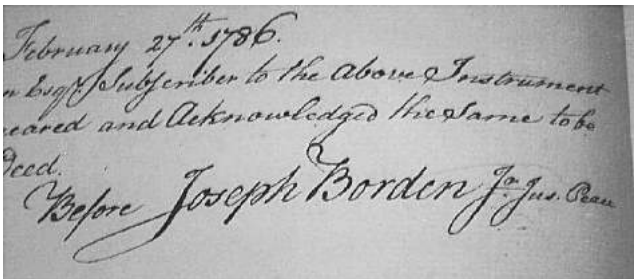 February 27th. 1786.
n Esqr. Subscriber to the Above Instrument
eared and Acknowledged the Same to be
Deed.
Before Joseph Borden Jr. Jus. Peace